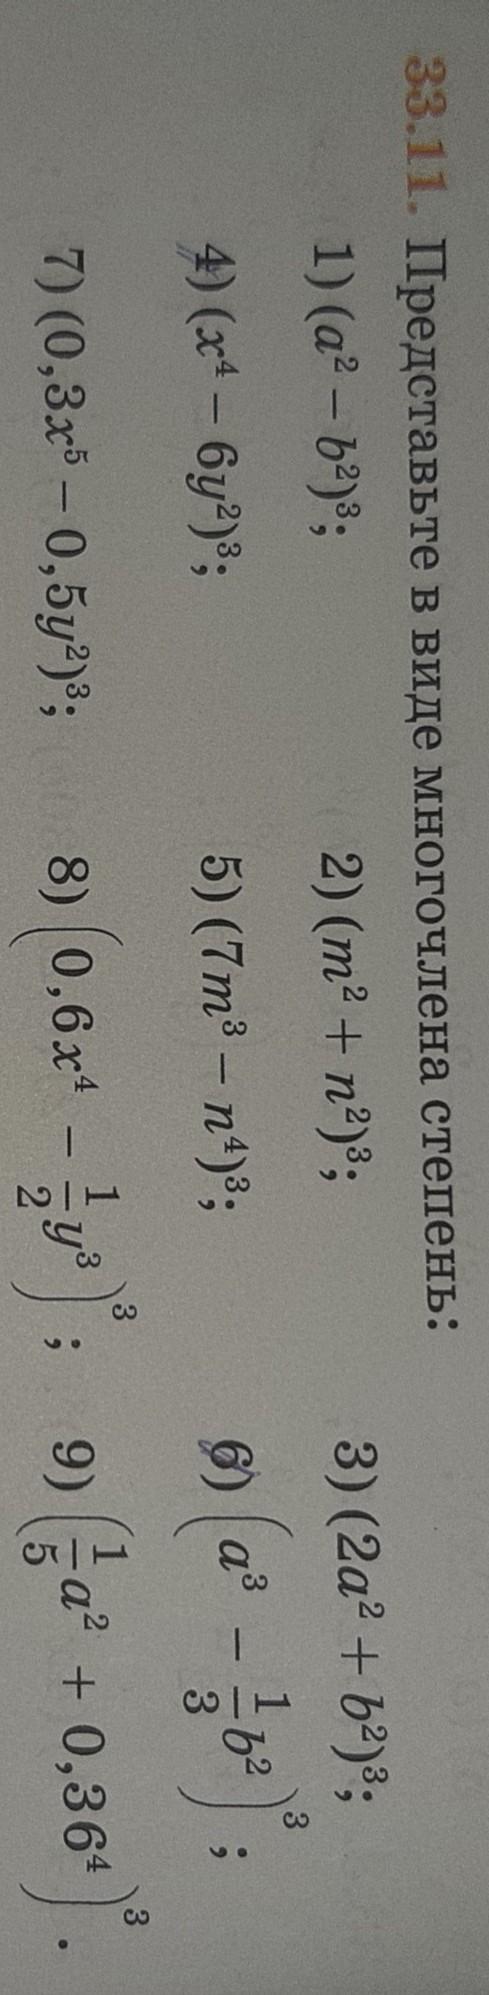 33.11. Представьте в виде многочлена степень:
1) (a² – b²)³; 2) (m² + n²)³; 3) (2a² + b²)³;
4) (x⁴ – 6y²)³; 5) (7m³ – n⁴)³; 6) (a³ – 1/3 b²)³;
7) (0,3x⁵ – 0,5y²)³; 8) (0,6x⁴ – 1/2 y³)³; 9) (1/5 a² + 0,36⁴)³.